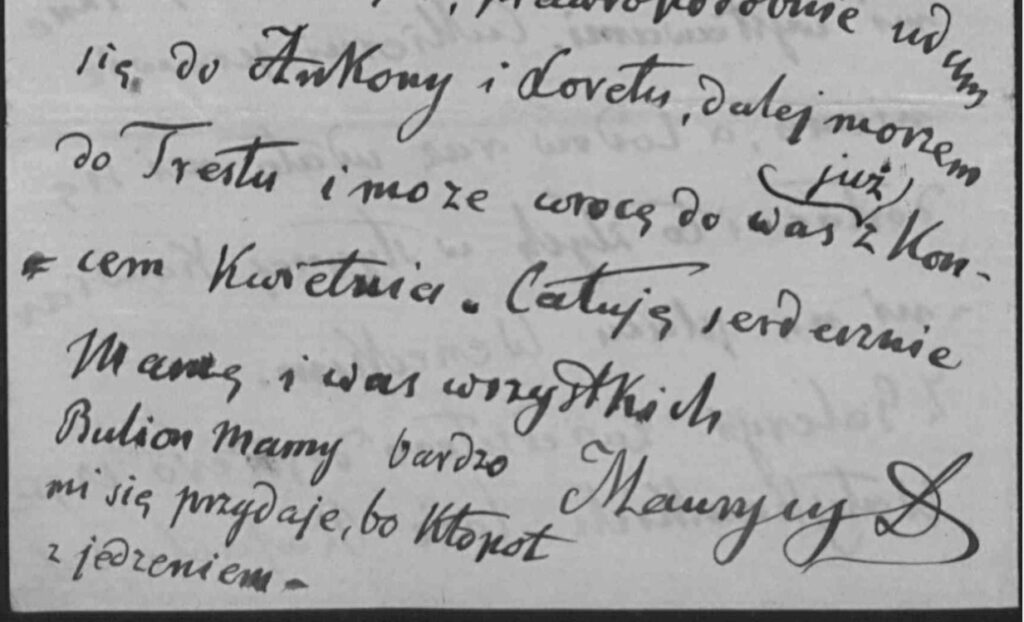 prawdopodobnie udam
się do Ankony i Loretu, dalej morzem
do Trestu i może wrocę do was już z Kon-
= cem Kwietnia. Całuję serdecznie
Mamę i was wszystkich
Bulion Mamy bardzo
mi się przydaje, bo Kłopot
z jedzeniem -
Maurycy